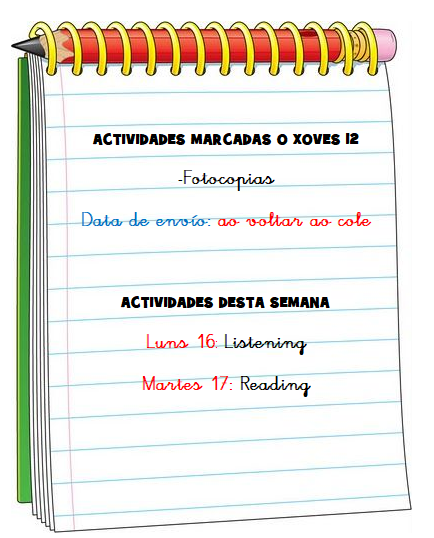 ACTIVIDADES MARCADAS O XOVES 12
-Fotocopias
Data de envío: ao voltar ao cole
ACTIVIDADES DESTA SEMANA
Luns 16: Listening
Martes 17: Reading